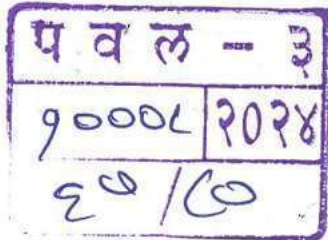 प व ल - ३
१०००८ २०२४
६७/८०